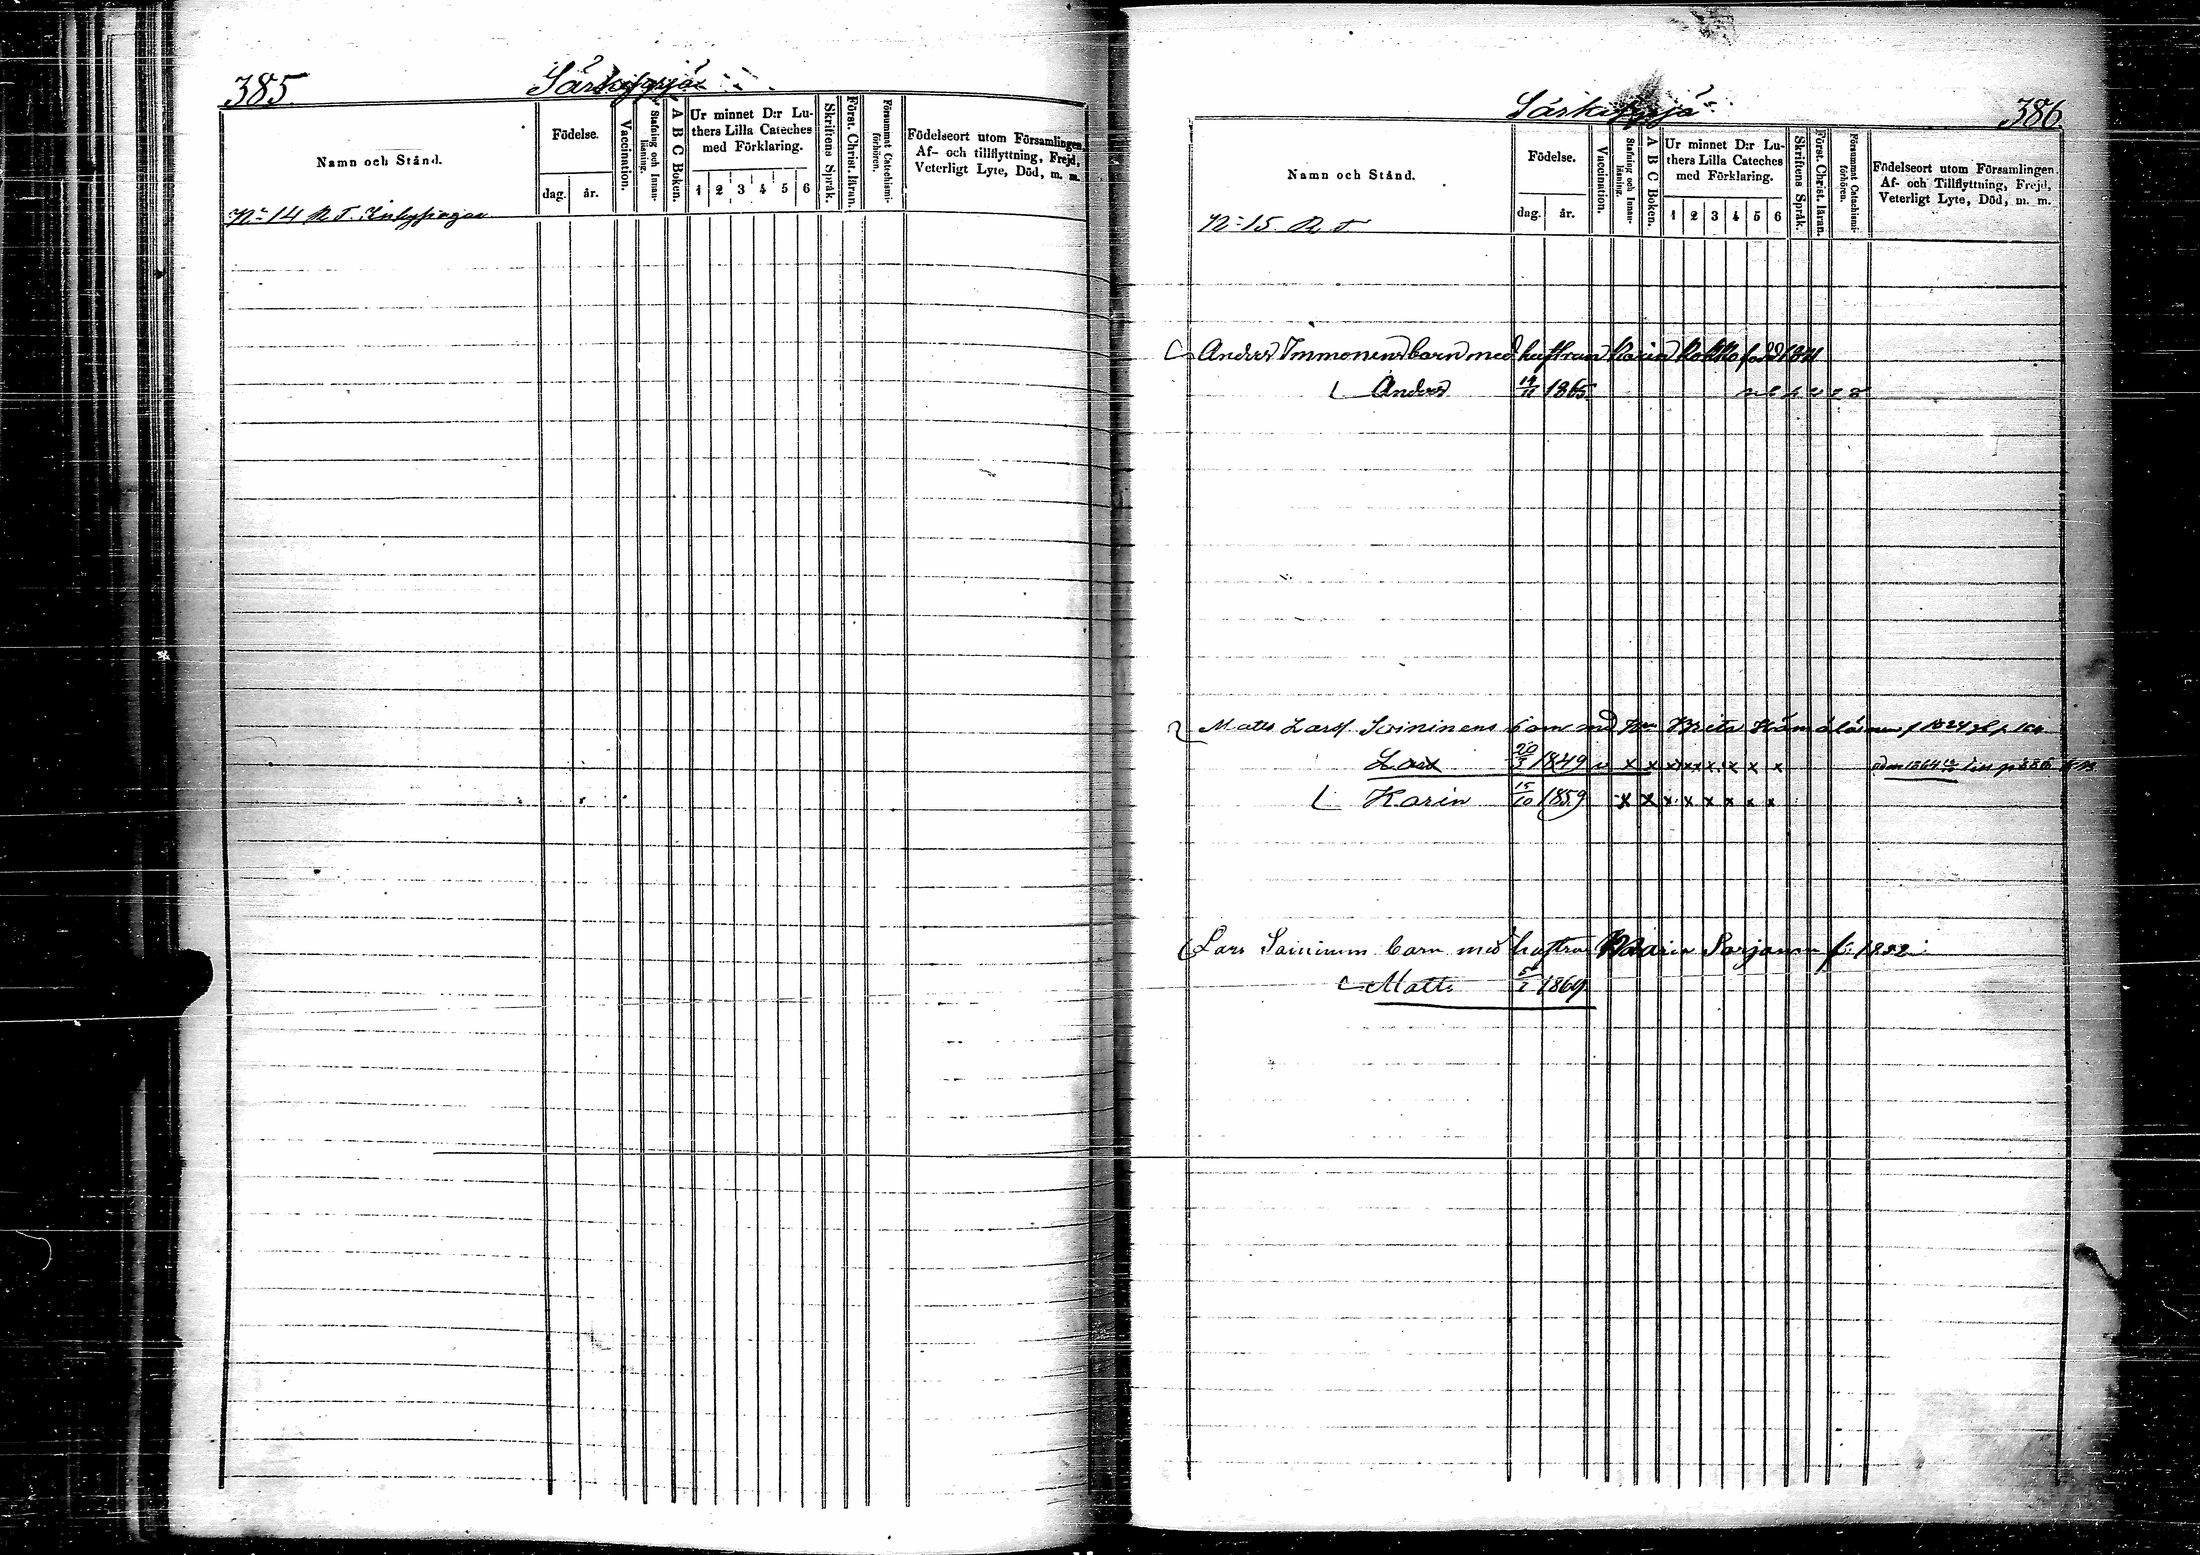 385
Namn och Stånd.
Födelse.
dag.
år.
Vaccination.
Stafning och Innan-
läsning.
A B C Boken.
Ur minnet D:r Lu-
thers Lilla Cateches
med Förklaring.
1 2 3 4 5 6
Skriftens Språk.
Först. Christ. läran.
Försummat Catechismi-
förhören.
Födelseort utom Församlingen,
Af- och tillflyttning, Frejd,
Veterligt Lyte, Död, m. m.
No 14 R. T.
386
Namn och Stånd.
Födelse.
dag.
år.
Vaccination.
Stafning och Innan-
läsning.
A B C Boken.
Ur minnet D:r Lu-
thers Lilla Cateches
med Förklaring.
1 2 3 4 5 6
Skriftens Språk.
Först. Christ. läran.
Försummat Catechismi-
förhören.
Födelseort utom Församlingen.
Af- och Tillflyttning, Frejd,
Veterligt Lyte, Död, m. m.
No 15. R T
Anders Immonens barn med hustrun Karin Kokko född 1841
Anders 1865
Matts Larss. Soininens barn med Brita f 1824
Lars 20/3 1849 x x x x x x x x
Karin 15/10 1859 x x x x x x x x
Lars Soininens barn med hustrun Maria Sorjonen f: 1832
Matts 1869